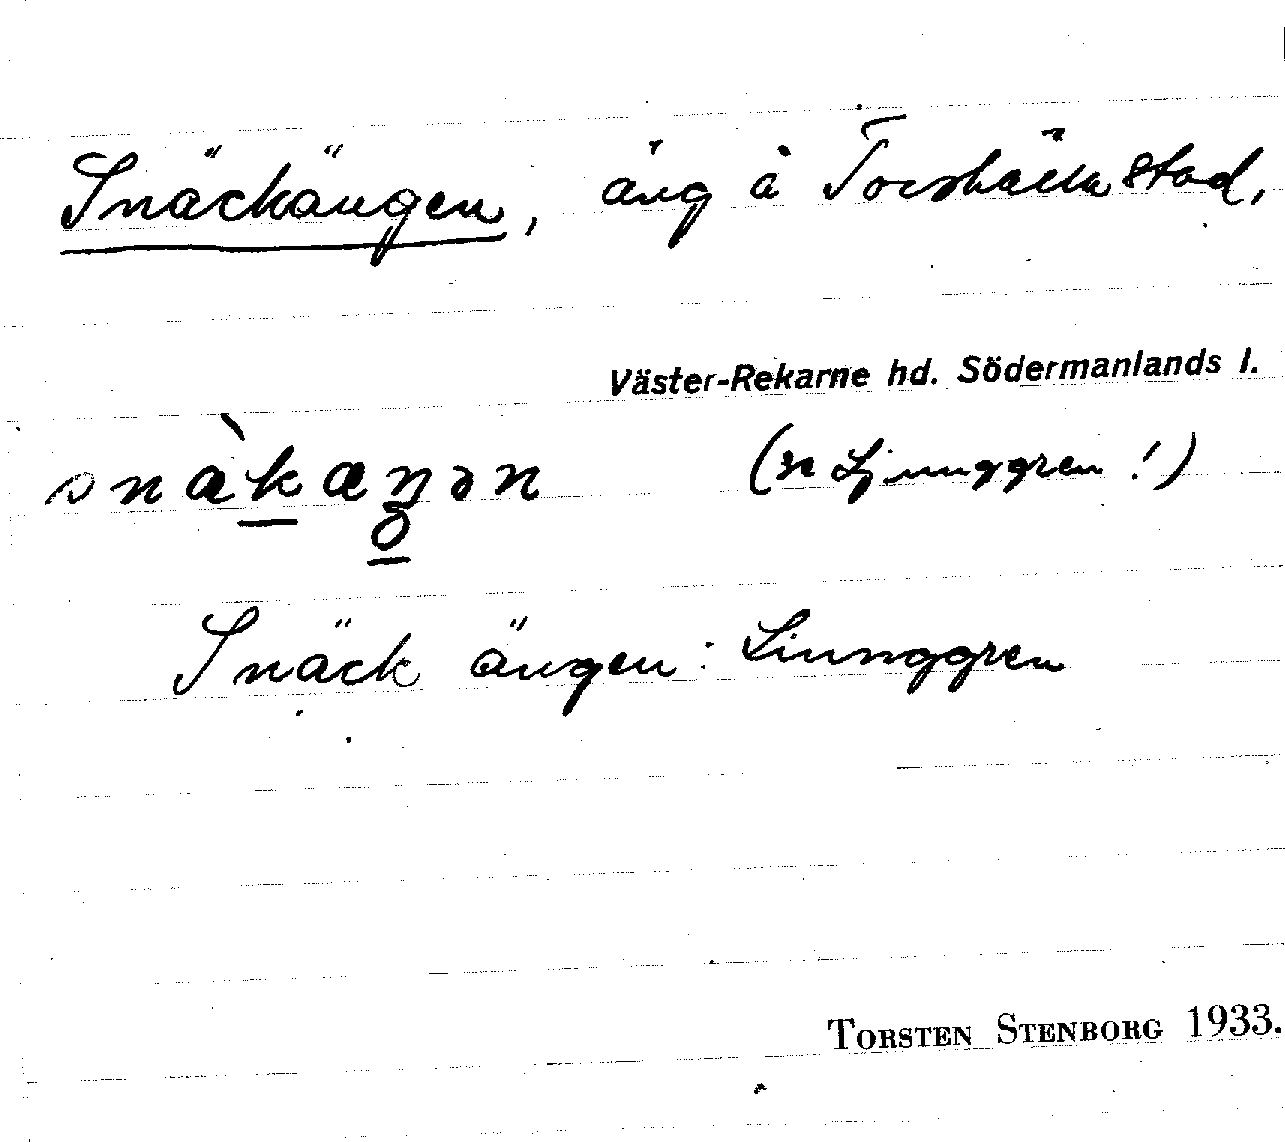 Snäckängen, äng å Torsbäckstad,
Väster-Rekarne hd. Södermanlands l.
snæ̀kæŋən (se Ljunggren!)
Snäck ängen: Liunggren
TORSTEN STENBORG 1933.